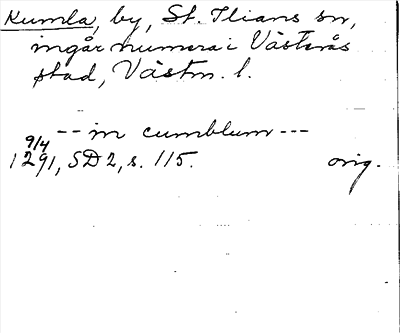 Kumla, by, St. Ilians sn,
ingår numera i Västerås
stad, Västm. l.
-- in cumblum ---
9/4
1291, SD 2, s. 115. orig.